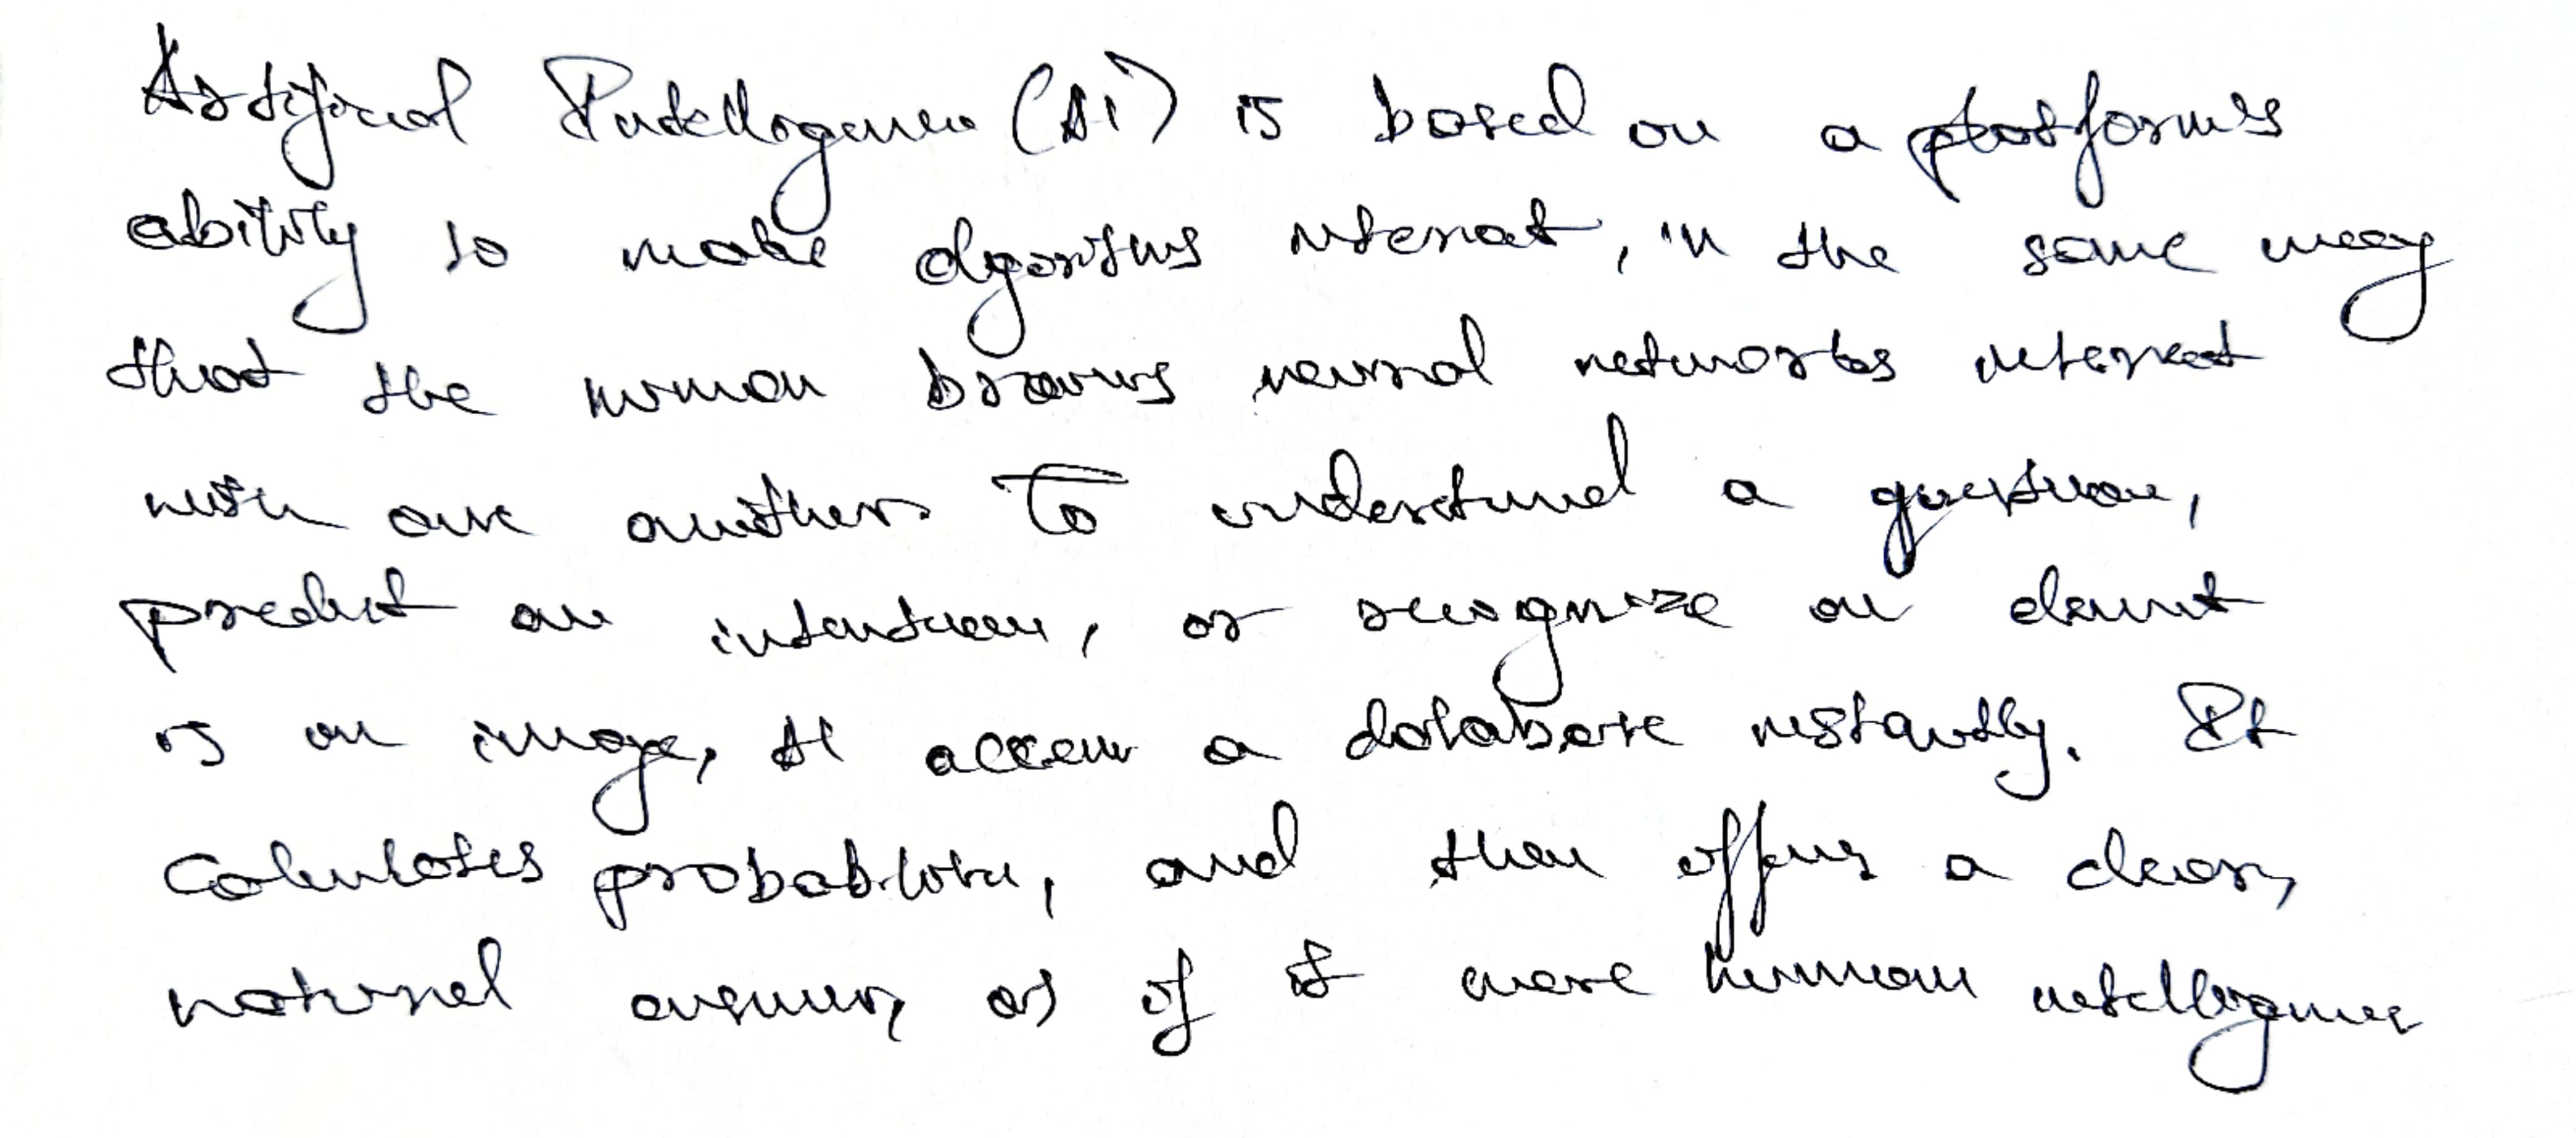 Artificial Intelligence (AI) is based on a platforms
ability to make algorithms interact, in the same way
that the human brains neural networks interact
with one another. To understand a question,
predict an intention, or recognize an element
is an image, it access a database instantly. It
Calculates probabilities, and then offers a clear,
natural answer, as if it were human intelligence